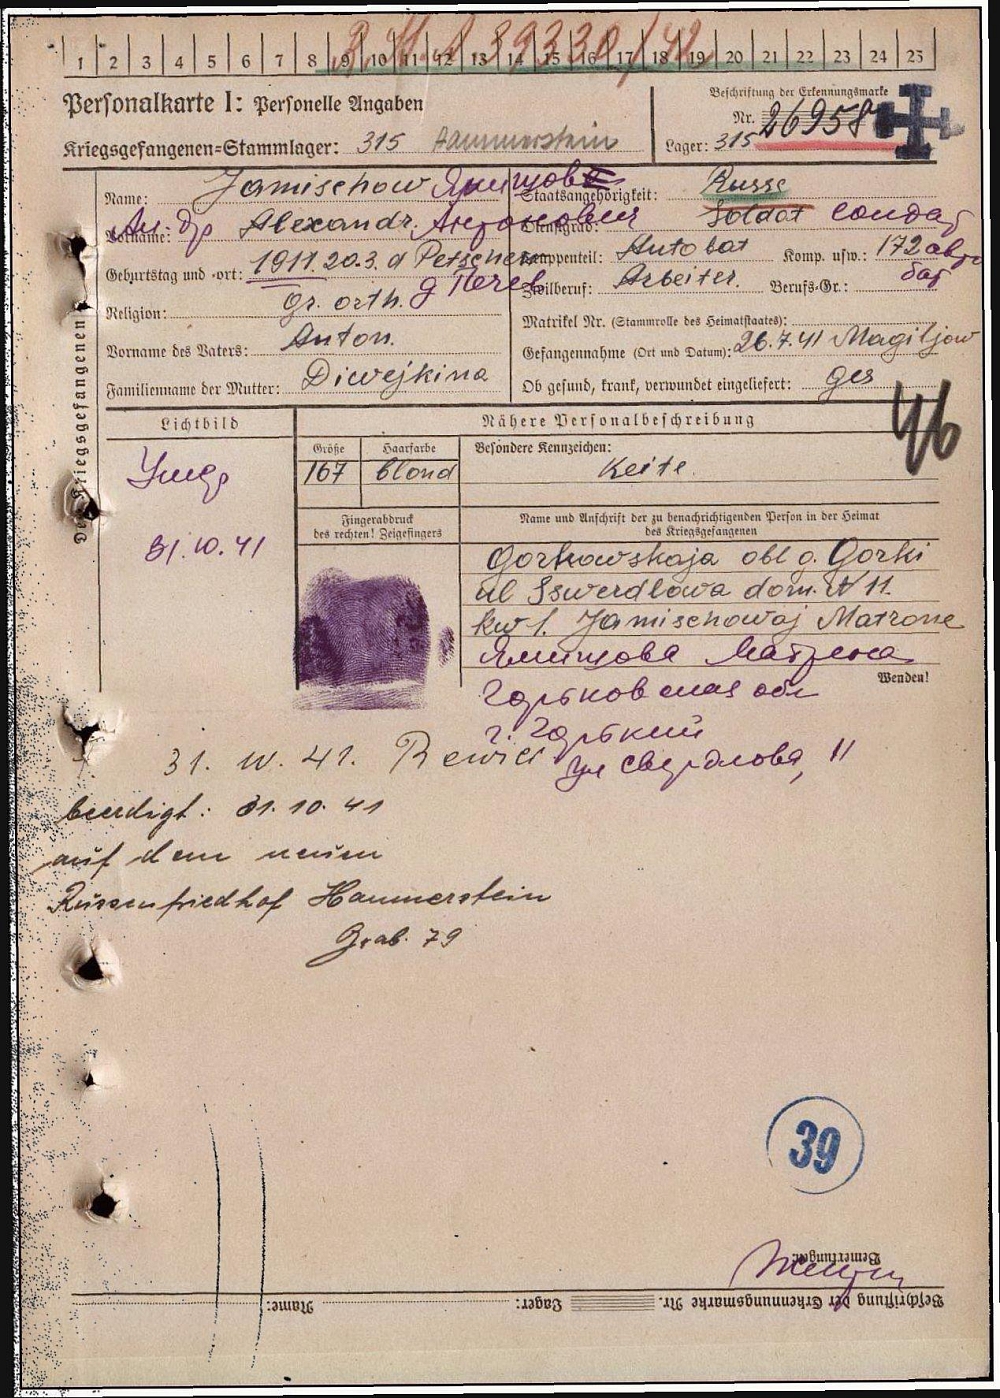 1 2 3 4 5 6 7 8 9 10 11 12 13 14 15 16 17 18 19 20 21 22 23 24 25
Personalkarte I: Personelle Angaben
Beschriftung der Erkennungsmarke
Nr. 26958
Kriegsgefangenen-Stammlager: 315 Hammerstein
Lager: 315
Name: Jamischow Ямищов
Staatsangehörigkeit: Russe
Vorname: Alexandr. Антонович
Dienstgrad: Soldat Солдат
Geburtstag und -ort: 1911. 20.3. d Petschern
Truppenteil: Autobat Komp. usw.: 172 авто
бат
Religion: gr. orth.
Zivilberuf: Arbeiter. Berufs-Gr.:
Matrikel Nr. (Stammrolle des Heimatstaates):
Vorname des Vaters: Anton.
Gefangennahme (Ort und Datum): 26.7.41 Magiljow
Familienname der Mutter: Diwejkina
Ob gesund, krank, verwundet eingeliefert: ges
46
Des Kriegsgefangenen
Lichtbild
Nähere Personalbeschreibung
Größe Haarfarbe Besondere Kennzeichen:
167 blond Keite.
Умер
31.10.41
Fingerabdruck
des rechten! Zeigefingers
Name und Anschrift der zu benachrichtigenden Person in der Heimat
des Kriegsgefangenen
Gorkowskaja obl g. Gorki
ul Sswerdlowa dom. N 11.
kw 1. Jamischowaj Matrone
Ямищова Матрена
Wenden!
Горьковская обл
г. Горький
ул Свердлова, 11
31. 10. 41. Revier
beerdigt: 31. 10. 41
auf dem neuen
Russenfriedhof Hammerstein
Grab. 79
39
Bemerkungen:
Beschriftung der Erkennungsmarke Nr. Lager: Name: